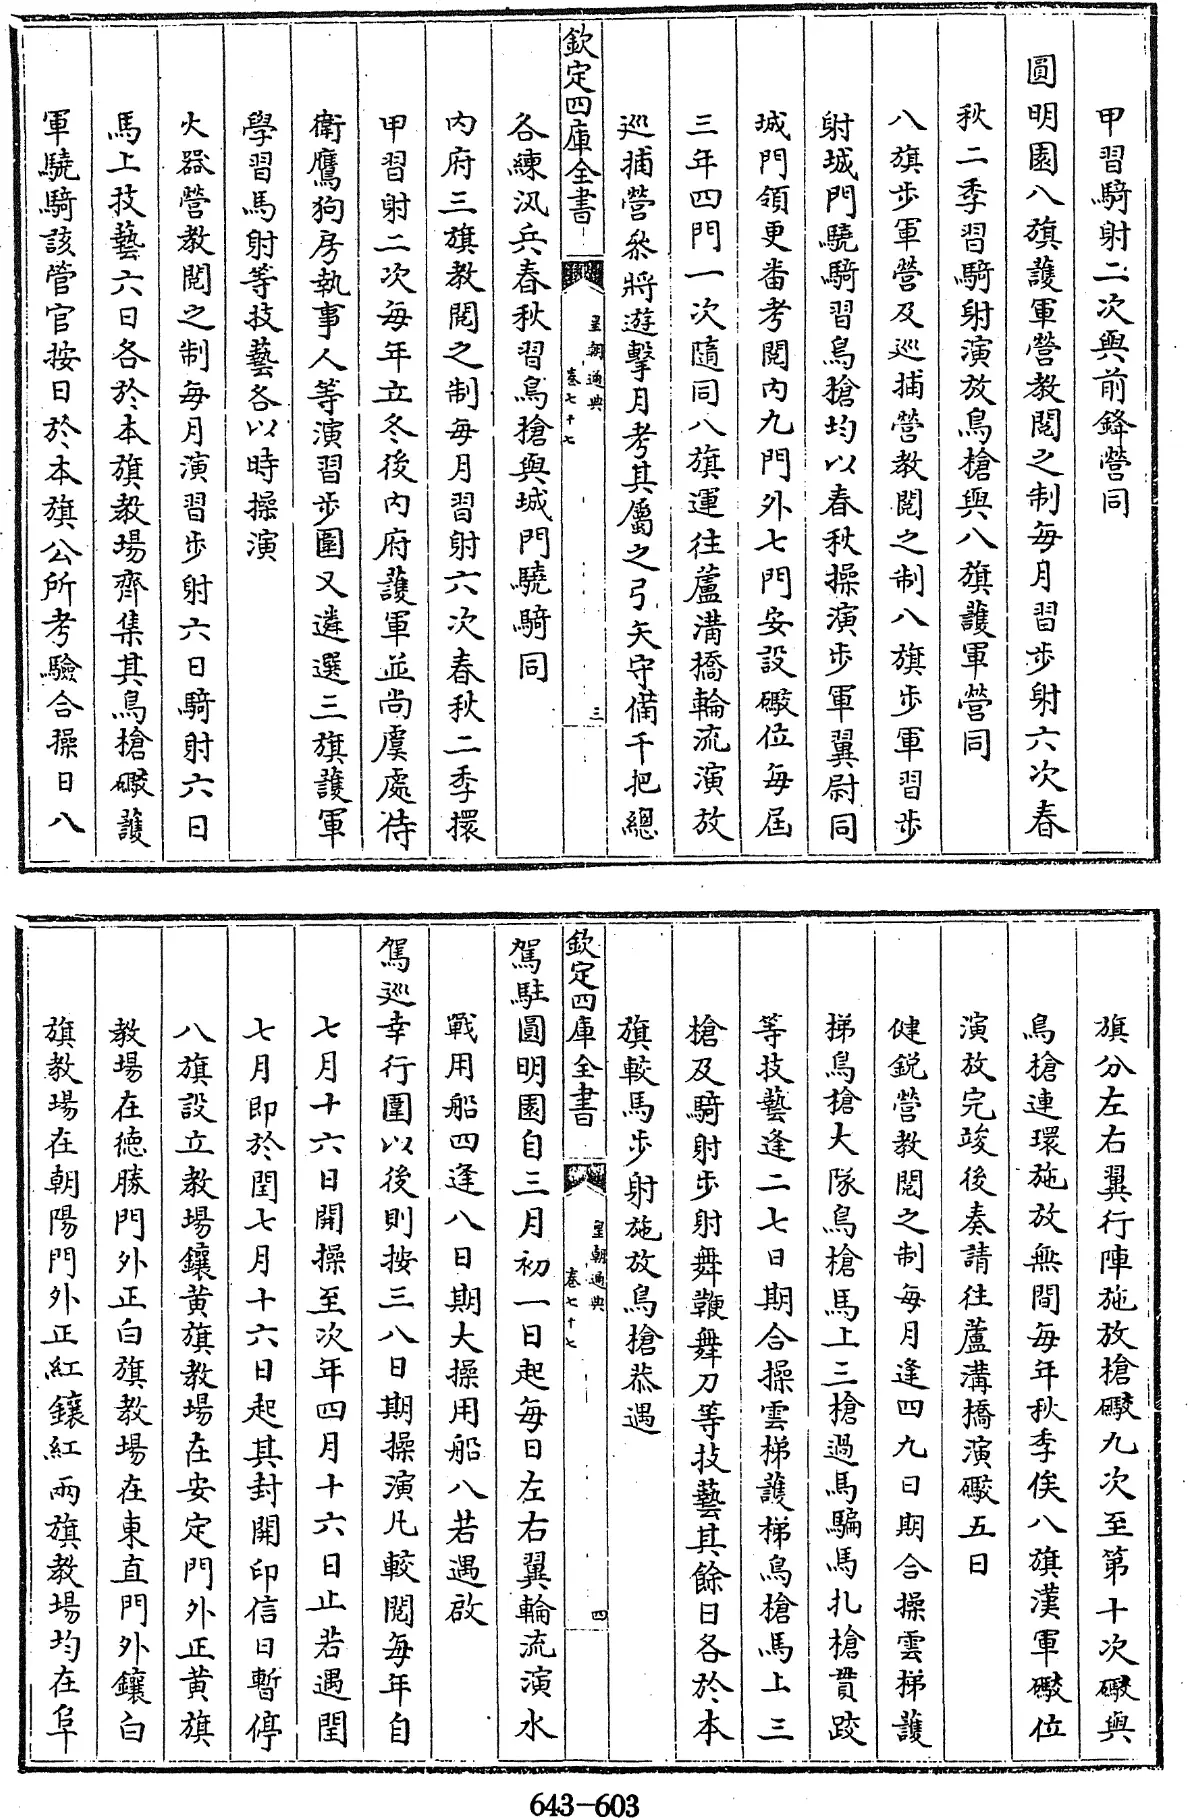 甲習騎射二次與前鋒營同
圓明園八旗護軍營教閱之制每月習步射六次春
秋二季習騎射演放鳥槍與八旗護軍營同
八旗步軍營及巡捕營教閱之制八旗步軍習步
射城門驍騎習鳥槍均以春秋操演步軍翼尉同
城門領更番考閱內九門外七門安設礮位每屆
三年四門一次隨同八旗運往蘆溝橋輪流演放
巡捕營叅將遊擊月考其屬之弓矢守備千把總
欽定四庫全書
皇朝通典
卷七十七
三
各練汛兵春秋習鳥槍與城門驍騎同
內府三旗教閱之制每月習射六次春秋二季擐
甲習射二次每年立冬後內府護軍並尚虞處侍
衛鷹狗房執事人等演習步圍又遴選三旗護軍
學習馬射等技藝各以時操演
火器營教閱之制每月演習步射六日騎射六日
馬上技藝六日各於本旗教場齊集其鳥槍礮護
軍驍騎該管官按日於本旗公所考驗合操日八
旗分左右翼行陣施放槍礮九次至第十次礮與
鳥槍連環施放無間每年秋季俟八旗漢軍礮位
演放完竣後奏請往蘆溝橋演礮五日
健銳營教閱之制每月逢四九日期合操雲梯護
梯鳥槍大隊鳥槍馬上三槍過馬騙馬扎槍貫跤
等技藝逢二七日期合操雲梯護梯鳥槍馬上三
槍及騎射步射舞鞭舞刀等技藝其餘日各於本
旗較馬步射施放鳥槍恭遇
欽定四庫全書
皇朝通典
卷七十七
四
駕駐圓明園自三月初一日起每日左右翼輪流演水
戰用船四逢八日期大操用船八若遇啟
駕巡幸行圍以後則按三八日期操演凡較閱每年自
七月十六日開操至次年四月十六日止若遇閏
七月即於閏七月十六日起其封開印信日暫停
八旗設立教場鑲黃旗教場在安定門外正黃旗
教場在德勝門外正白旗教場在東直門外鑲白
旗教場在朝陽門外正紅鑲紅兩旗教場均在阜
643-603